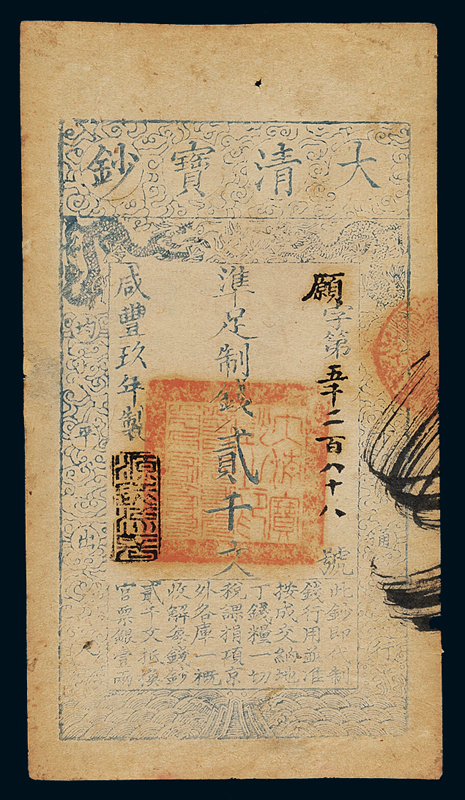 大清寶鈔
願字第五千二百八十八號
準足制錢貳千文
咸豐玖年製
通行
均平出
此鈔即代制
錢行用並准
按成交納地
丁錢糧一切
稅課捐項京
外各庫一概
收解每錢鈔
貳千文抵換
官票銀壹兩